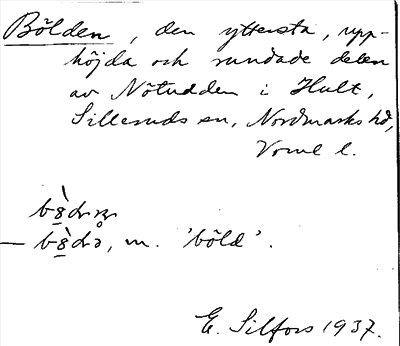 Bölden, den yttersta, upp-
höjda och rundade delen
av Nötudden i Hult,
Silleruds sn, Nordmarks hd,
Vrml l.
— , m. 'böld'.
E. Silfors 1937.